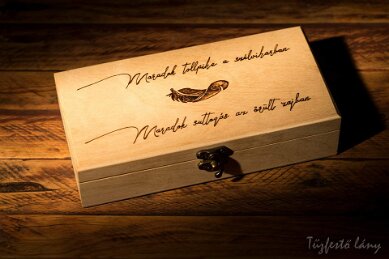 Maradok tollpihe a szélviharban
Maradok suttogás az őrült zajban
Tűzfestő lány